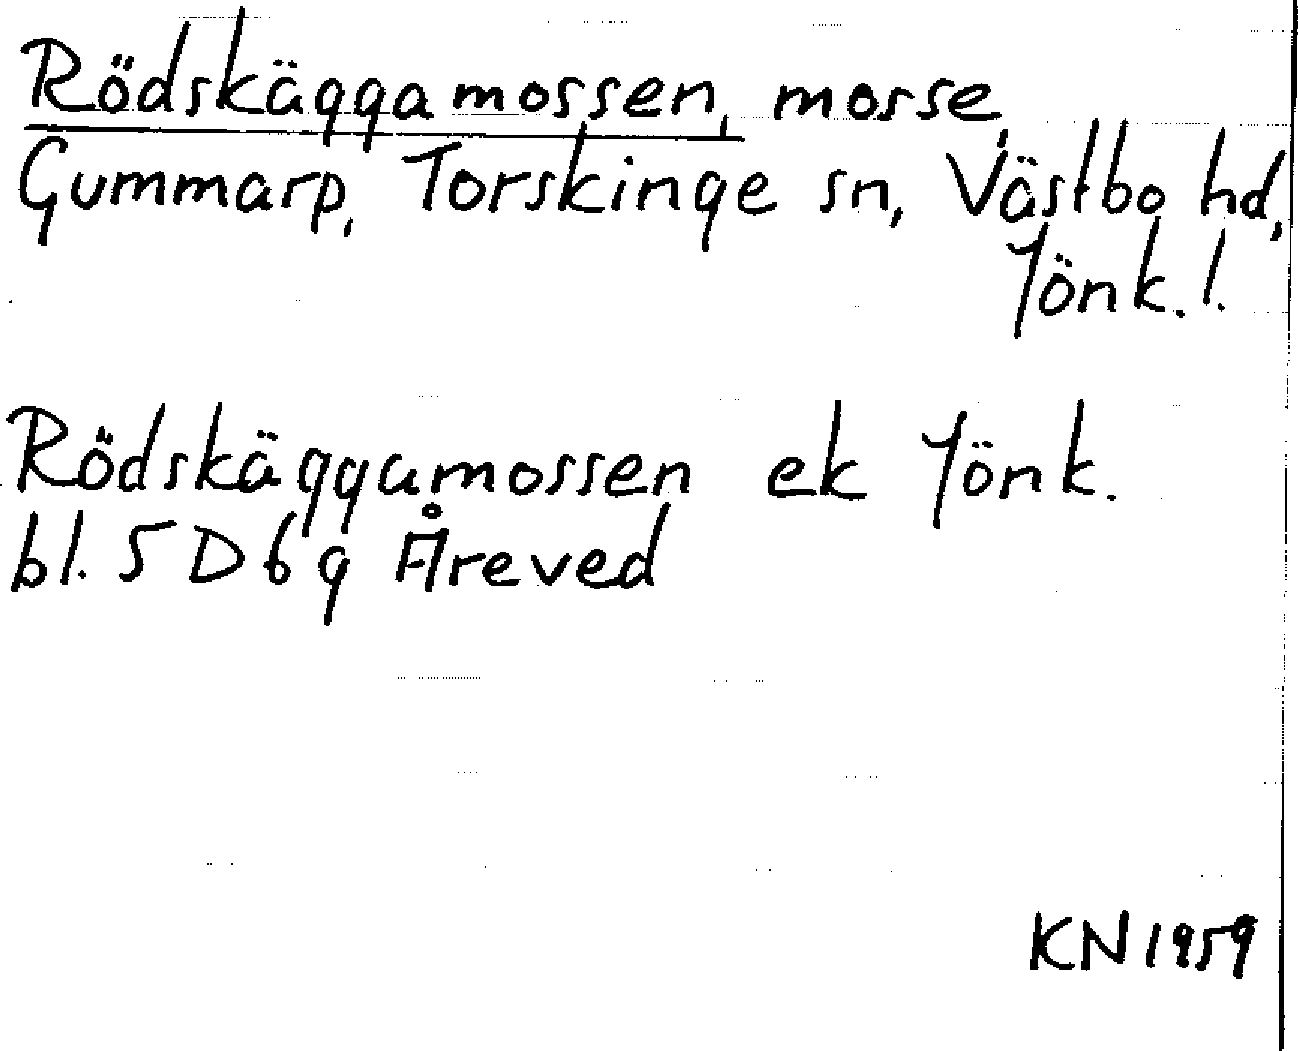 Rödskäggamossen, mosse,
Gummarp, Torskinge sn, Västbo hd,
Jönk. l.
Rödskäggamossen ek Jönk.
bl. 5 D 6 g Åreved
KN 1959